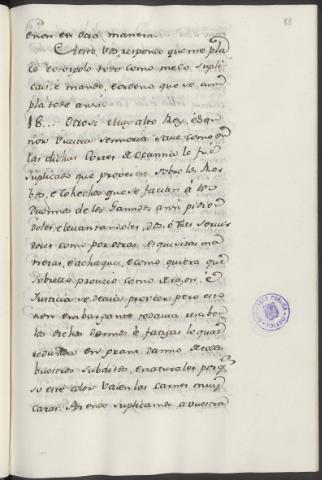 88
e non en otra manera.
A esto vos respondo que me pla
ce e otorgolo todo como me lo supli
cais, e mando, e ordeno que se cum
pla todo ansi.
18... Otrosi Muy alto Rey, e Se
ñor Vuestra Señoria save como en
las dichas Cortes de Ocanna le fue
suplicado que proveiese sobre los Ro
bos, e Cohechos que se facian á los
Duennos de los Ganados ansi pidien
doles, e levantandoles, dos, ó tres servi
cios como por otras esquisitas ma
neras, e achaques, e como quiera que
sobrello proveio como de razon, e
Justicia se devia proveer pero esto
non embargante todavia reciben
los dichos dannos é fatigas lo qual
redunda en gran danno de todos
vuestros subditos, e naturales porq.e
so este color valen las carnes muy
caras. Por ende suplicamos a vuestra